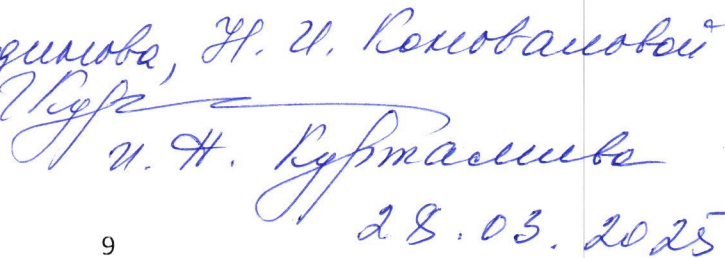 динова, Н. И. Коноваловой
И. Н. Курталиева
28.03.2025
9